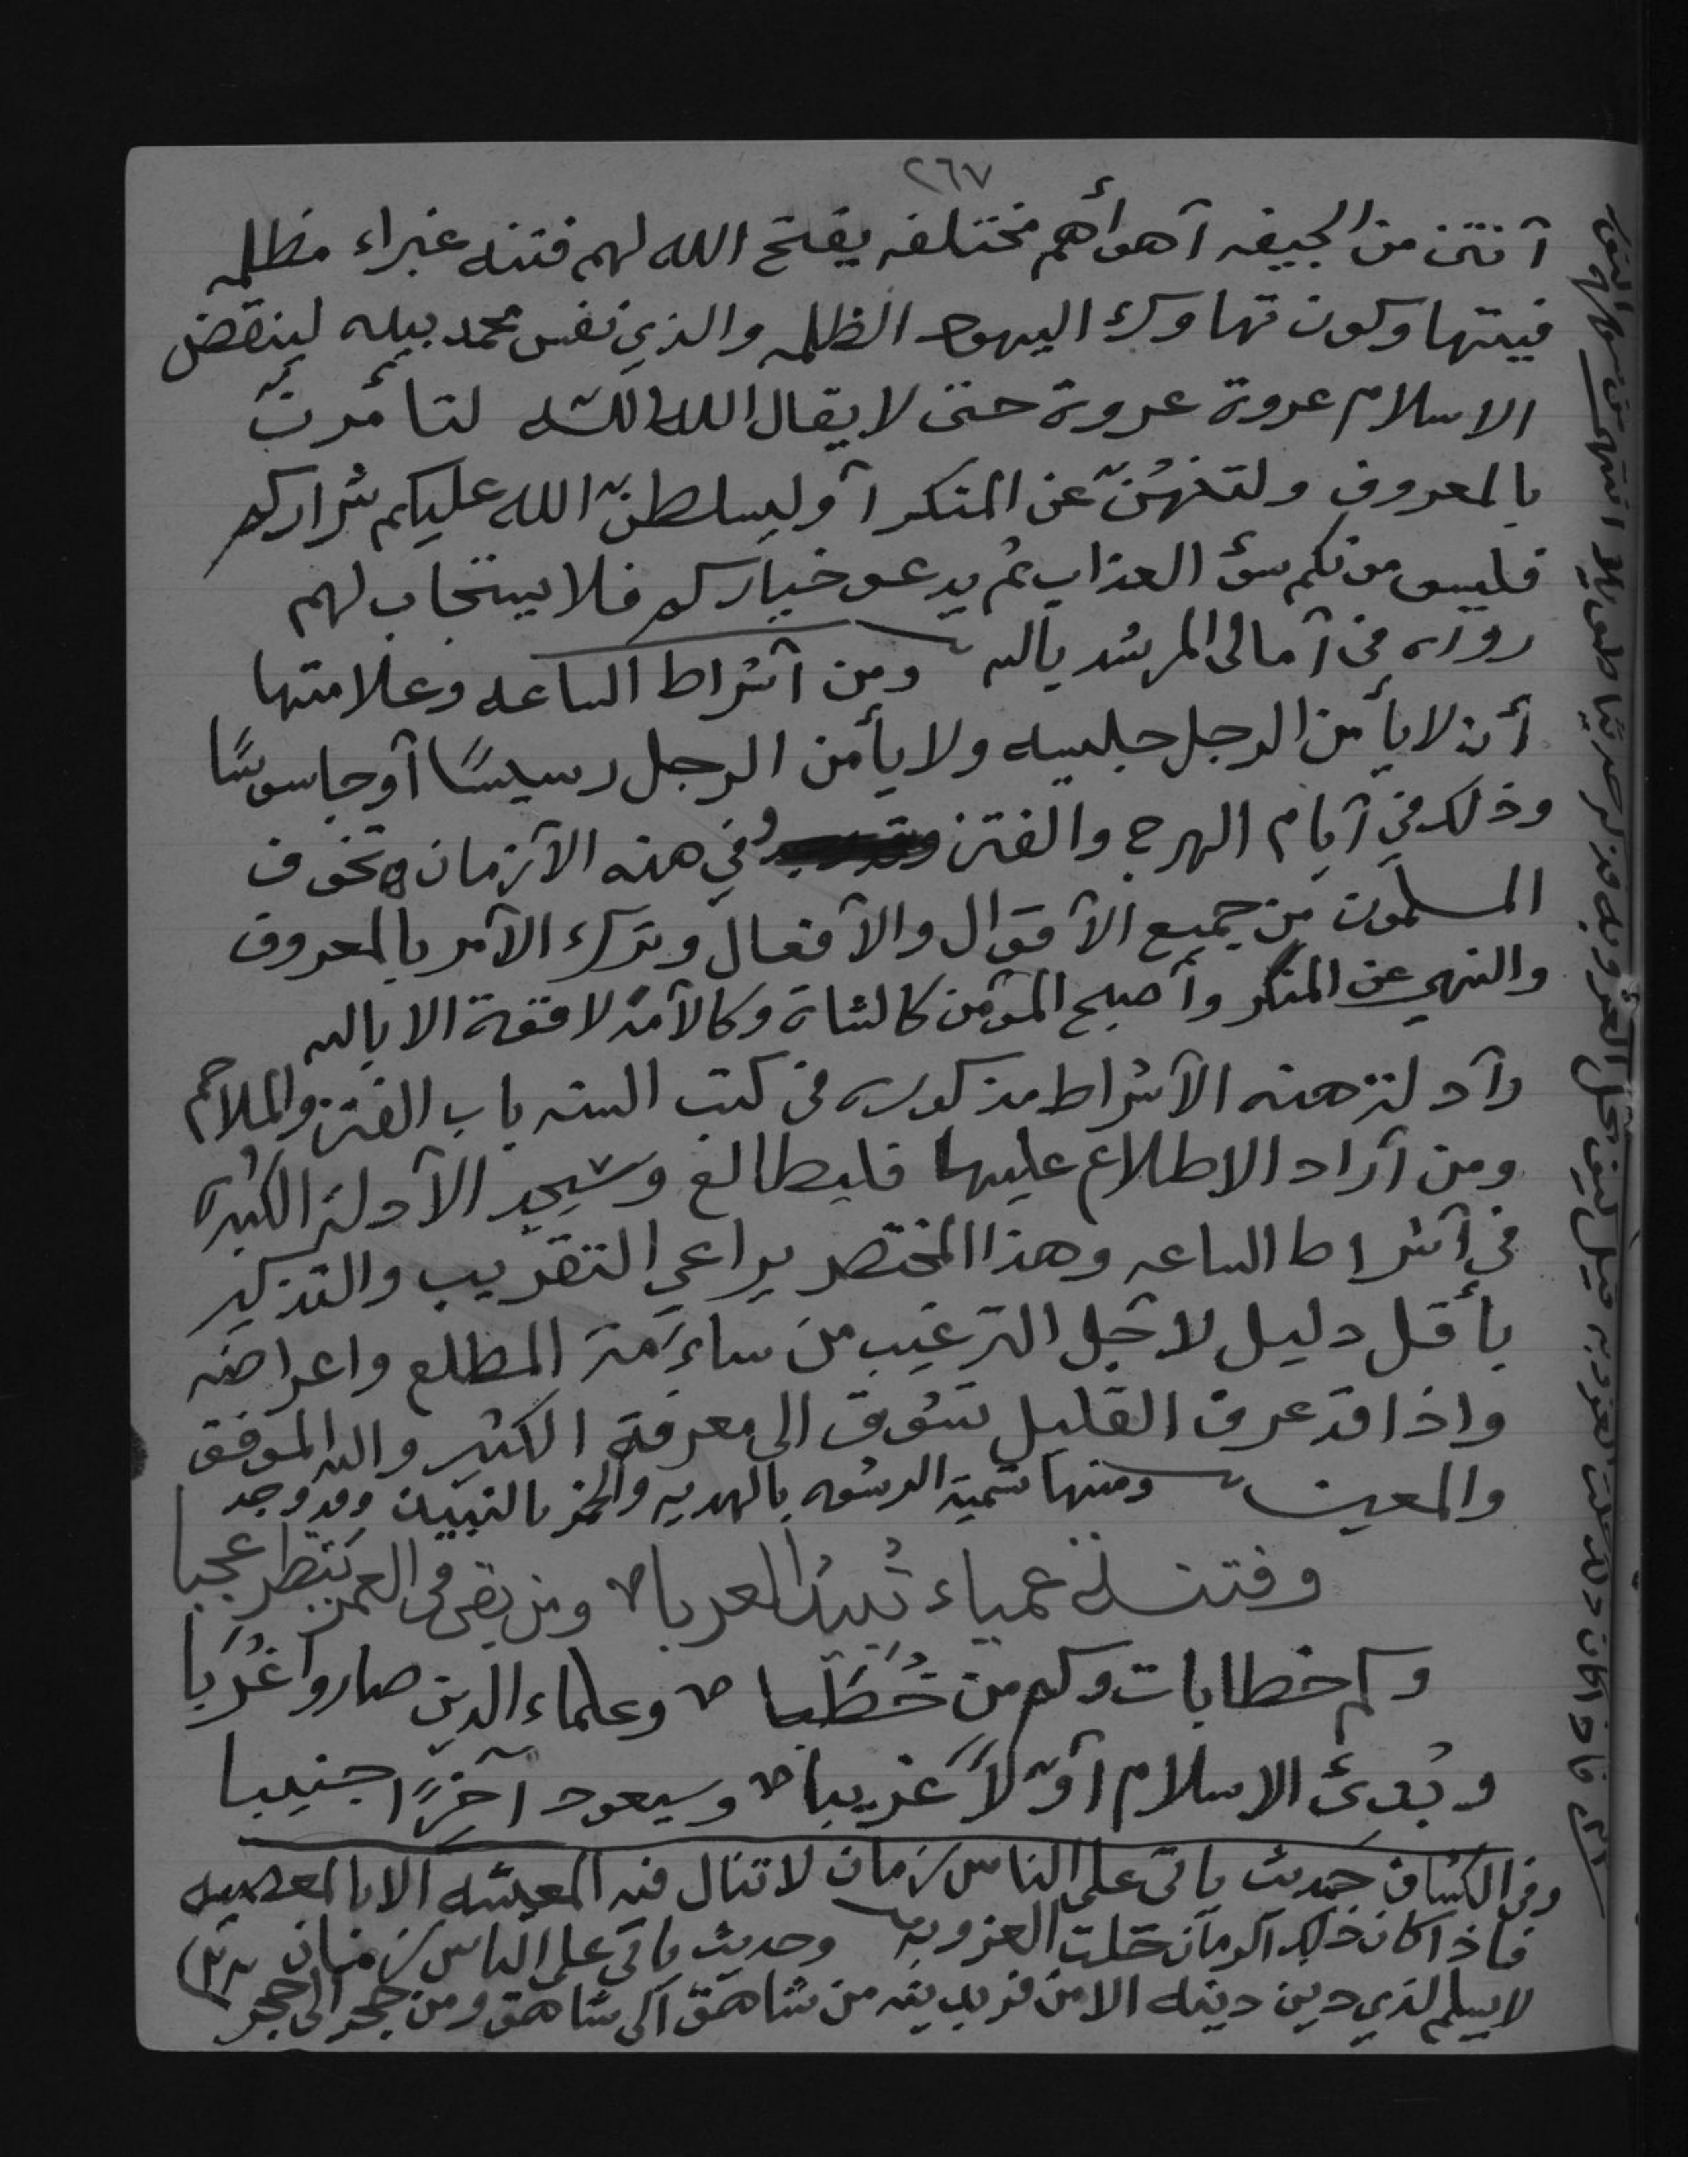 ٢٦٧
أنتن من الجيفه أهوأهم مختلفه يفتح الله لهم فتنه غبراء مظلمه
فيتهاوكون تهاوك اليهود الظلمه والذي نفس محمد بيده لينقضن
الاسلام عروة عروة حتى لا يقال الله الله لتأمرنّ
بالمعروف ولتنهنّ عن المنكر أو ليسلطنّ الله عليكم شراركم
فليسومونكم سؤ العذاب ثم يدعو خياركم فلا يستجاب لهم
رواه في أمالي المرشد بالله ومن أشراط الساعه وعلامتها
أن لا يأمن الرجل جليسه ولا يأمن الرجل رسيسًا أو جاسوسًا
وذلك في أيام الهرج والفتن وفي هذه الأزمان تخوف
المسلمون من جميع الأقوال والأفعال وترك الأمر بالمعروف
والنهي عن المنكر وأصبح المؤمن كالشاة وكالأمة لا قوة الا بالله
وأدلة هذه الأشراط مذكوره في كتب السنه باب الفتن والملاحم
ومن أراد الاطلاع عليها فليطالع وسيجد الأدلة الكثيره
في أشراط الساعه وهذا المختصر يراعي التقريب والتذكير
بأقل دليل لأجل الترغيب من سآمة المطلع واعراضه
واذا قد عرف القليل تشوق الى معرفة الكثير والله الموفق
والمعين ومنها تسمية الرشوه بالهديه والخمر بالنبيذ وقد وجد
وفتنة عمياء تبيد العربا ومن بقى في العمر ينتظر عجبا
وكم خطابات وكم من خُطَبا وعلماء الدين صاروا غُرَبا
وبُدئ الاسلام أوّلاً غريبا وسيعود آخرًا اجنبيا
وفي الكشاف حديث يأتي على الناس زمان لا تنال فيه المعيشه الا بالمعصيه
فاذا كان ذلك الزمان حلت العزوبه وحديث يأتي على الناس زمان
لا يسلم لذي دين دينه الا من فر بدينه من شاهق الى شاهق ومن جحر الى جحر